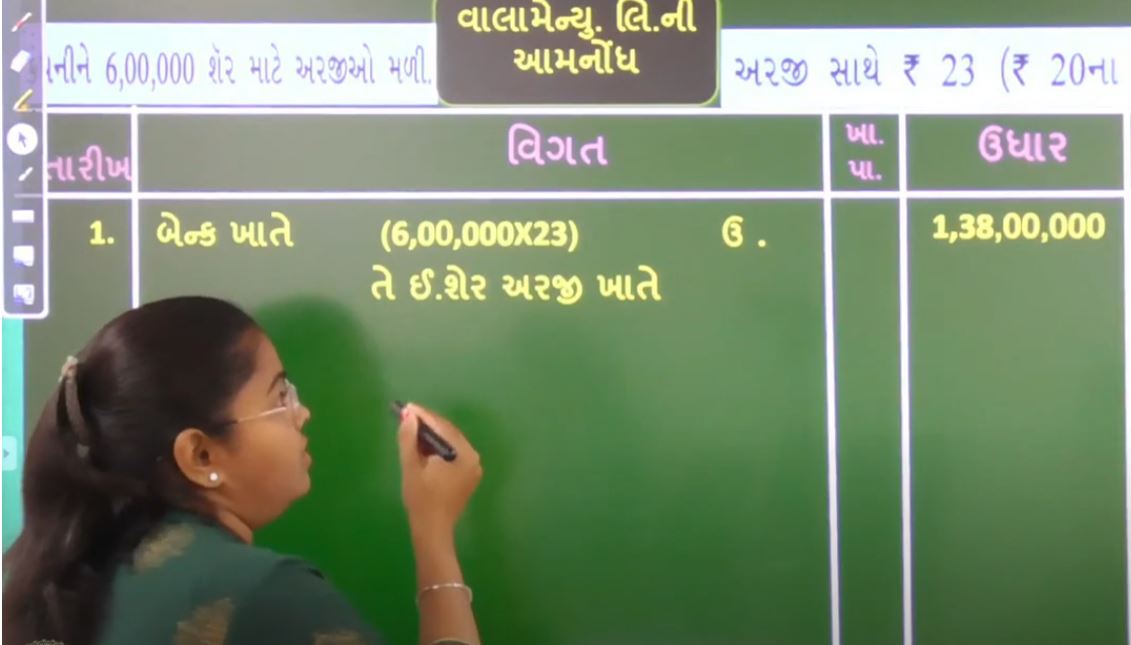 વાલામેન્યુ. લિ.ની
આમનોંધ
6,00,000 શૅર માટે અરજીઓ મળી.
અરજી સાથે ₹ 23 (₹ 20ના
તારીખ
વિગત
ખા.
પા.
ઉધાર
1. બેન્ક ખાતે (6,00,000X23) ઉ . 1,38,00,000
તે ઈ.શેર અરજી ખાતે